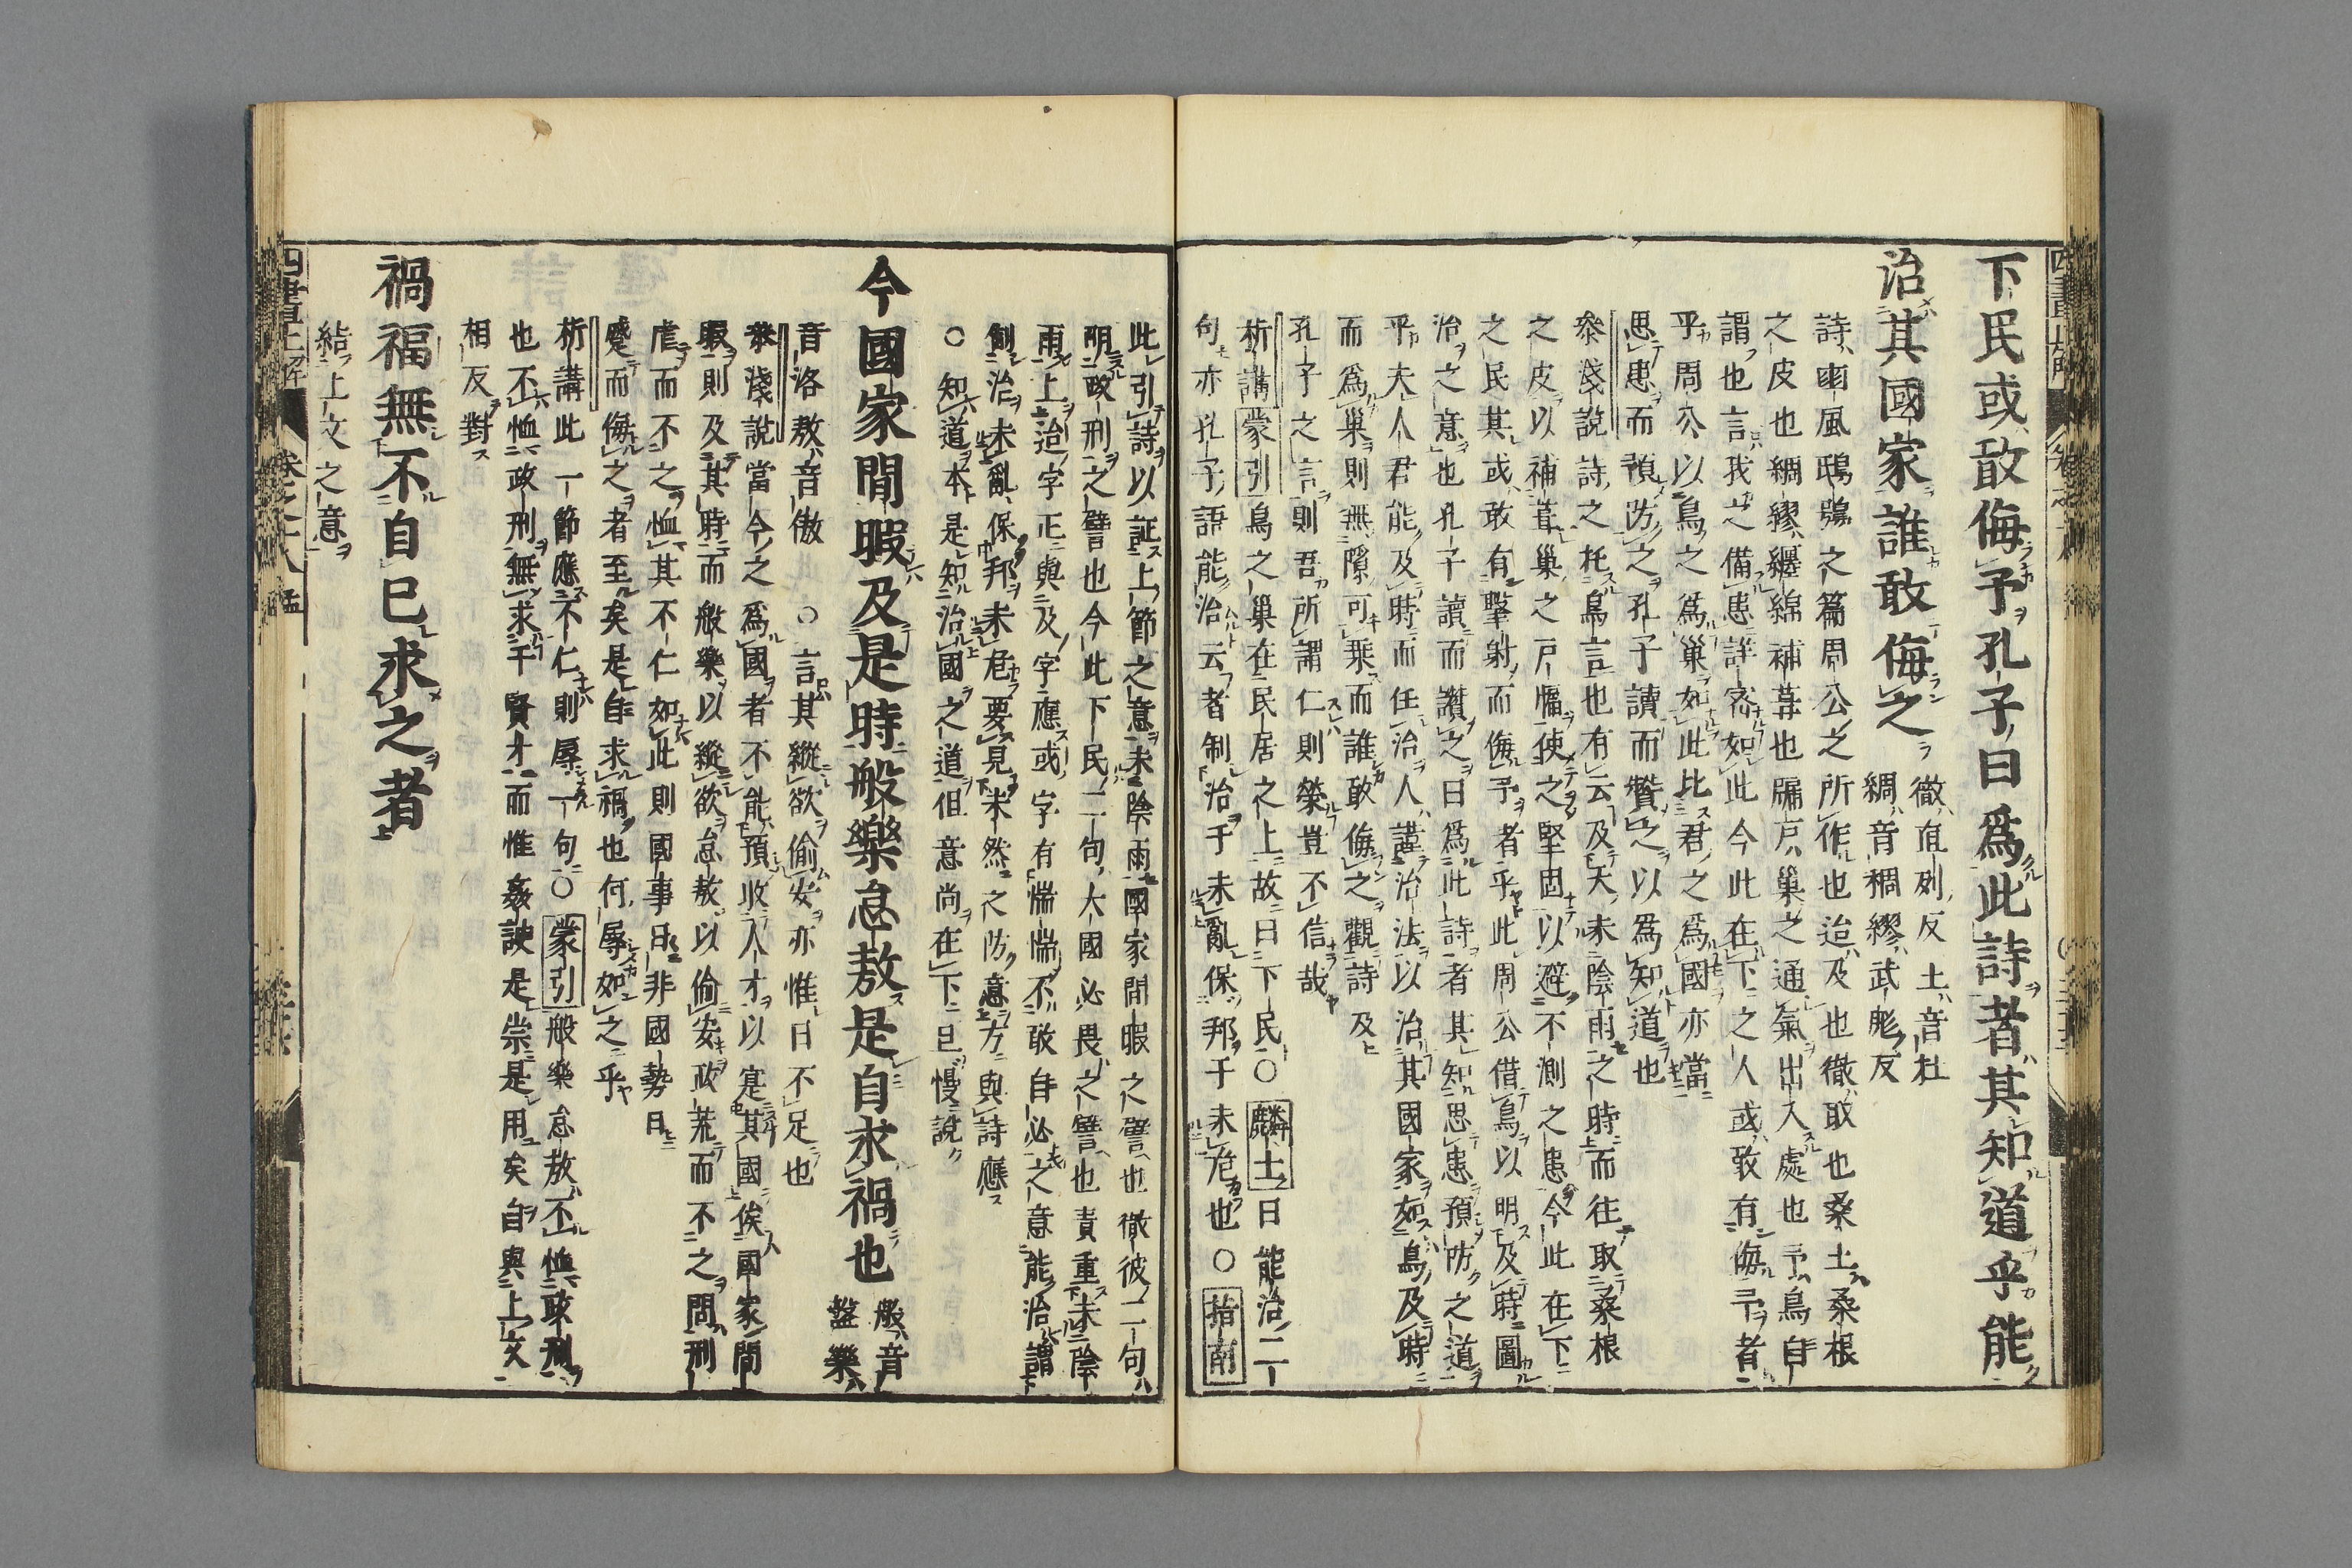 下民或敢侮予孔子曰爲此詩者其知道乎能
治其國家誰敢侮之
徹直列反土音杜
綢音稠繆武彪反
詩豳風鴟鴞之篇周公之所作也迨及也徹取也桑土桑根
之皮也綢繆纏綿補葺也牖戶巢之通氣出入處也予鳥自
謂也言我之備患詳密如此今此在下之人或敢有侮予者
乎周公以鳥之爲巢如此比君之爲國亦當
思患而預防之孔子讀而贊之以爲知道也
叅淺說詩之托鳥言也有云及天未陰雨之時而往取桑根
之皮以補葺巢之戸牖使之堅固以避不測之患今此在下
之民其或敢有擊射而侮予者乎此周公借鳥以明及時圖
治之意也孔子讀而讚之曰爲此詩者其知思患預防之道
乎夫人君能及時而任治人講治法以治其國家如鳥及時
而爲巢則無隙可乘而誰敢侮之觀詩及
孔子之言則吾所謂仁則榮豈不信哉
析講蒙引鳥之巢在民居之上故曰下民○麟士曰能治二
句亦孔子語能治云者制治于未亂保邦于未危也○指南
此引詩以証上節之意未陰雨國家閒暇之譬也徹彼二句
明政刑之譬也今此下民二句大國必畏之譬也責重未陰
雨上迨字正與及字應或字有惴惴不敢自必之意能治謂
制治未亂保邦未危要見未然之防意方與詩應
○知道本是知治國之道但意尚在下且慢說
今國家閒暇及是時般樂怠敖是自求禍也
般音
盤樂
音洛敖音傲　○言其縱欲偷安亦惟日不足也
叅淺說當今之爲國者不能預收人才以寔其國俟國家閒
暇則及其時而般樂以縱欲怠敖以偷安政荒而不之問刑
虐而不之恤其不仁如此則國事日非國勢日
蹙而侮之者至矣是自求禍也何辱如之乎
析講此一節應不仁則辱一句○蒙引般樂怠敖不恤政刑
也不恤政刑無求于賢才而惟姦諛是崇是用矣自與上文
相反對
禍福無不自己求之者
結上文之意
四書正解